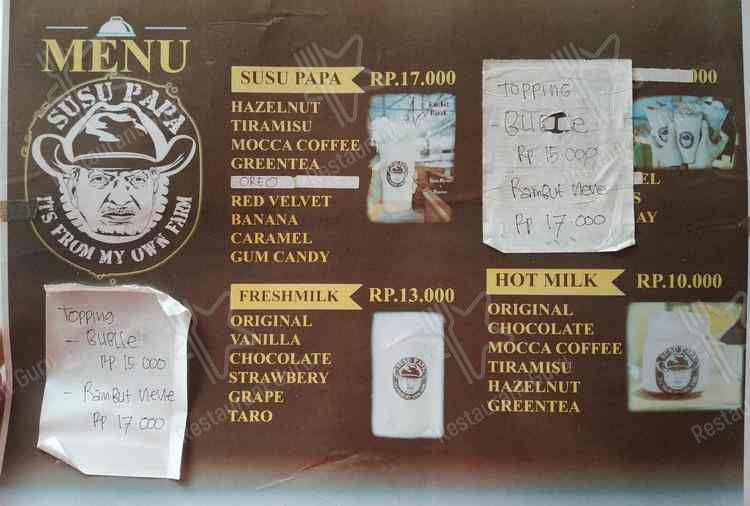 MENU
SUSU PAPA
IT'S FROM MY OWN FARM
SUSU PAPA RP.17.000
HAZELNUT
TIRAMISU
MOCCA COFFEE
GREENTEA
OREO
RED VELVET
BANANA
CARAMEL
GUM CANDY
TOPPING
- BUBLE
RP 15.000
- RAMBUT NENE
RP 17.000
000
EL
S
AY
FRESHMILK RP.13.000
ORIGINAL
VANILLA
CHOCOLATE
STRAWBERY
GRAPE
TARO
HOT MILK RP.10.000
ORIGINAL
CHOCOLATE
MOCCA COFFEE
TIRAMISU
HAZELNUT
GREENTEA
TOPPING
- BUBLE
RP 15.000
- RAMBUT NENE
RP 17.000